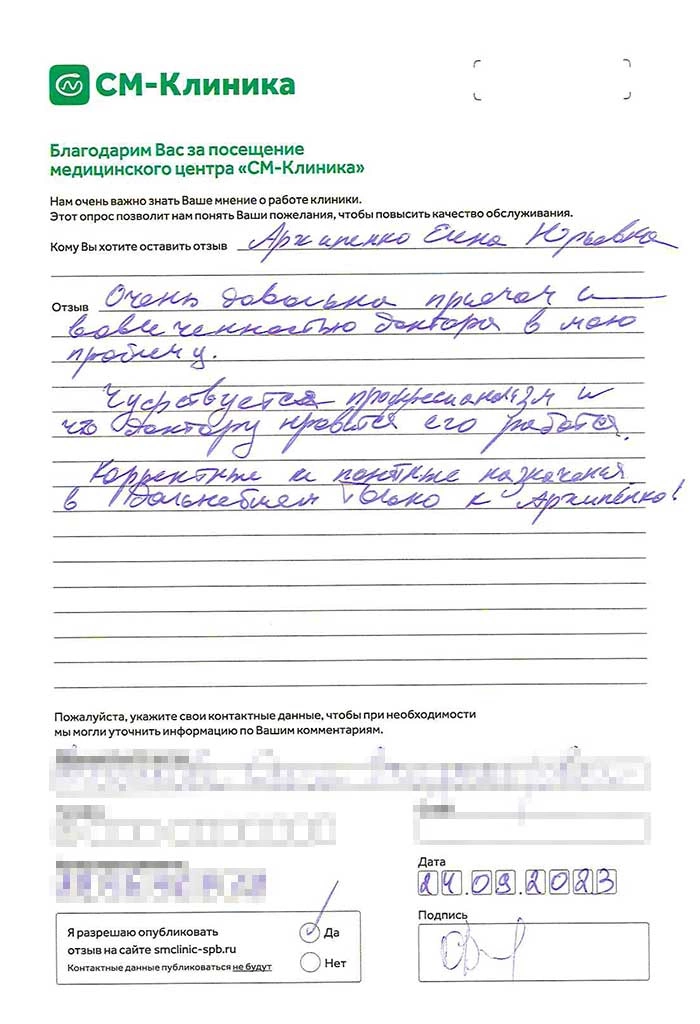 СМ-Клиника
Благодарим Вас за посещение
медицинского центра «СМ-Клиника»
Нам очень важно знать Ваше мнение о работе клиники.
Этот опрос позволит нам понять Ваши пожелания, чтобы повысить качество обслуживания.
Кому Вы хотите оставить отзыв Архипенко Елена Юрьевна
Отзыв Очень довольна приёмом и
вовлеченностью доктора в мою
проблему.
Чувствуется профессионализм и
что доктору нравится его работа.
Корректные и понятные назначения.
в дальнейшем только к Архипенко!
Пожалуйста, укажите свои контактные данные, чтобы при необходимости
мы могли уточнить информацию по Вашим комментариям.
Дата
24.09.2023
Подпись
Я разрешаю опубликовать
отзыв на сайте smclinic-spb.ru
Контактные данные публиковаться не будут
Да
Нет